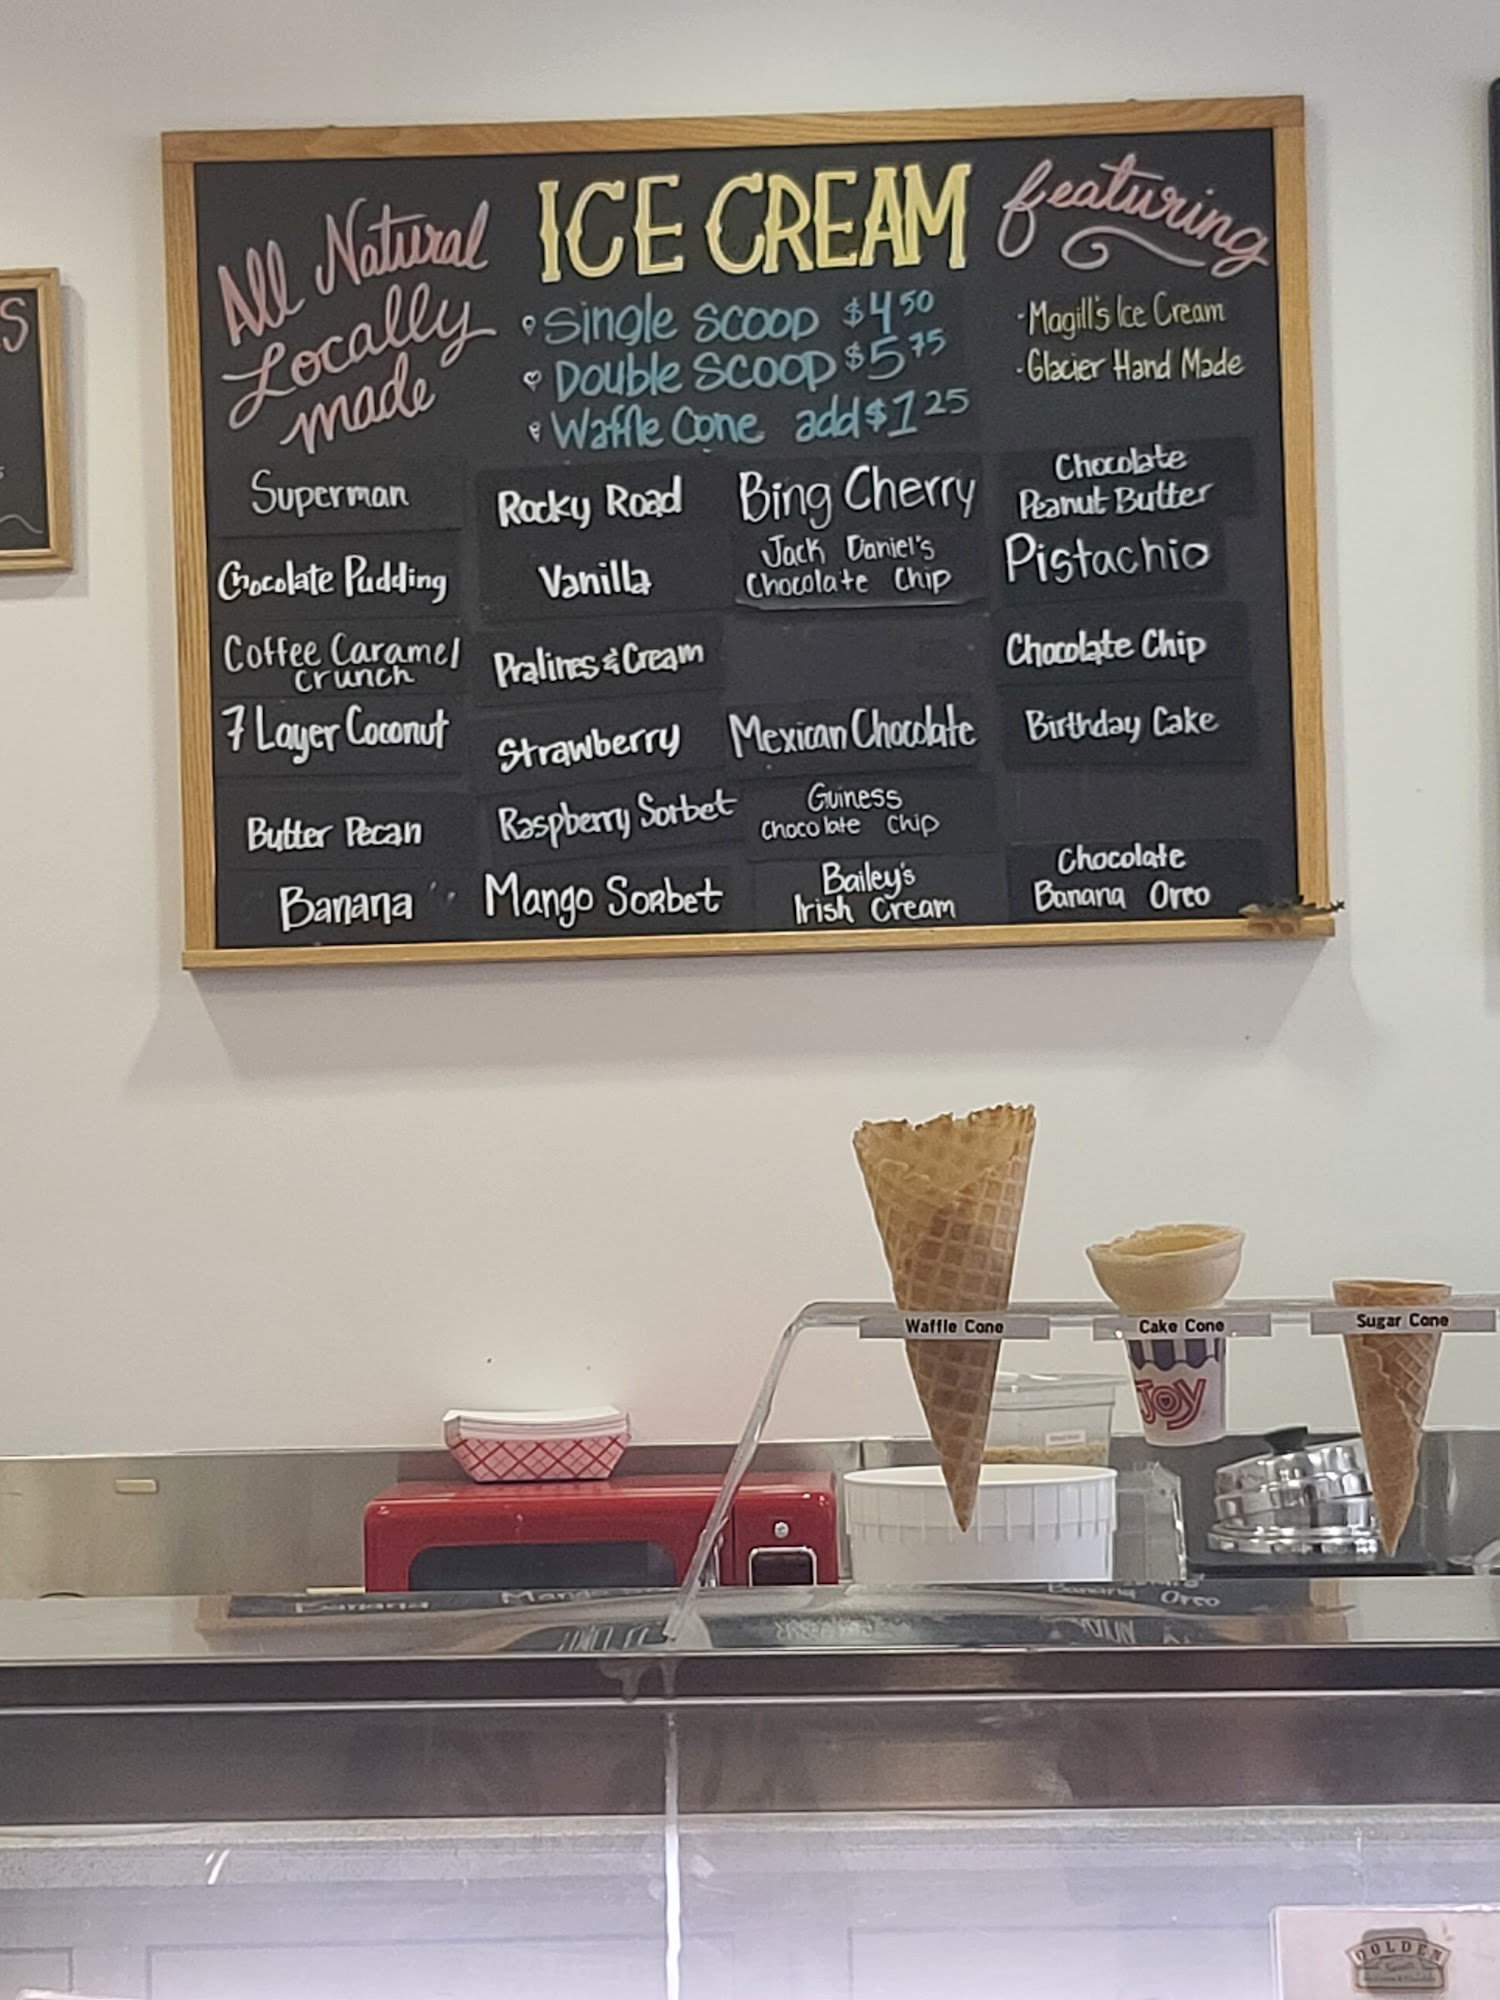 All Natural
Locally
made
ICE CREAM
Single scoop $4.50
Double scoop $5.75
Waffle Cone add $1.25
featuring
· Magill's Ice Cream
· Glacier Hand Made
Superman
Chocolate Pudding
Coffee Caramel
Crunch
7 Layer Coconut
Butter Pecan
Banana
Rocky Road
Vanilla
Pralines & Cream
Strawberry
Raspberry Sorbet
Mango Sorbet
Bing Cherry
Jack Daniel's
Chocolate Chip
Mexican Chocolate
Guiness
Chocolate Chip
Bailey's
Irish Cream
Chocolate
Peanut Butter
Pistachio
Chocolate Chip
Birthday Cake
Chocolate
Banana Oreo
S
Waffle Cone
Cake Cone
Sugar Cone
JOY
Banana
Mango
Banana Oreo
GOLDEN